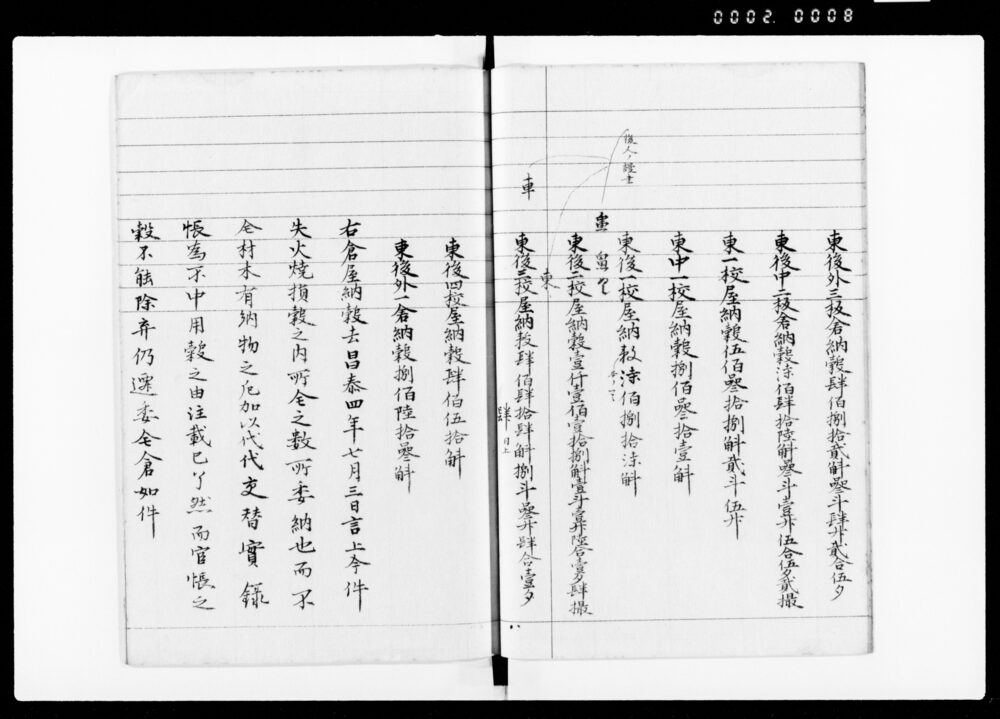 0002. 0008
東後外三板倉納穀肆佰捌拾貳斛叄斗肆升貳合伍夕
東後中二板倉納穀漆佰肆拾陸斛叄斗壹升伍合伍夕貳撮
東一校屋納穀伍佰叄拾捌斛貳斗伍升
東中一校屋納穀捌佰叄拾壹斛
東後一校屋納穀漆佰捌拾漆斛
後人ノ謾書
東後二校屋納穀壹仟壹佰壹拾捌斛壹斗壹升陸合壹夕肆撮
東
車
東後三校屋納穀肆佰肆拾肆斛捌斗叄升肆合壹夕
肆 日上
東後四校屋納穀肆佰伍拾斛
東後外一倉納穀捌佰陸拾叄斛
右倉屋納穀去昌泰四年七月三日言上今件
失火燒損穀之内所全之数所委納也而不
全材木有納物之危加以代代交替實錄
帳爲不中用穀之由注載已了然而官帳之
穀不能除弃仍還委全倉如件